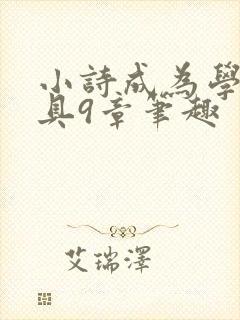 小詩成為學
具9章筆趣
艾瑞澤